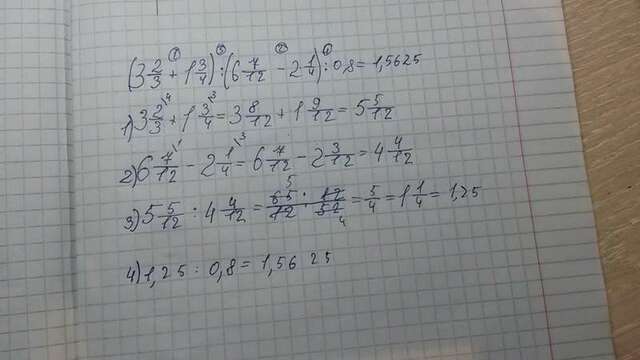 (3 2/3 ① + 1 3/4) ③ : (6 7/12 ② - 2 1/4) ④ : 0,8 = 1,5625
1) 3 2/3 ⁴ + 1 3/4 ³ = 3 8/12 + 1 9/12 = 5 5/12
2) 6 7/12 ¹ - 2 1/4 ³ = 6 7/12 - 2 3/12 = 4 4/12
3) 5 5/12 : 4 4/12 = 65/12 · 12/52 = 5/4 = 1 1/4 = 1,25
4) 1,25 : 0,8 = 1,56 25